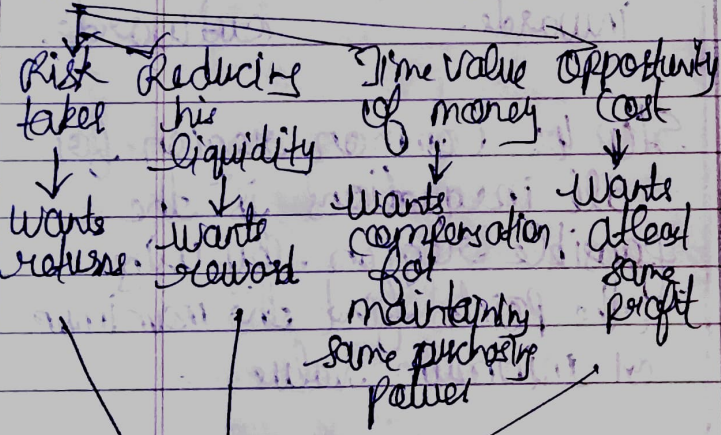 Risk
takes
wants
returns.
Reducing
his
liquidity
wants
reward
Time value
of money
wants
compensation
for
maintaining
same purchasing
power
Opportunity
cost
wants
atleast
same
profit